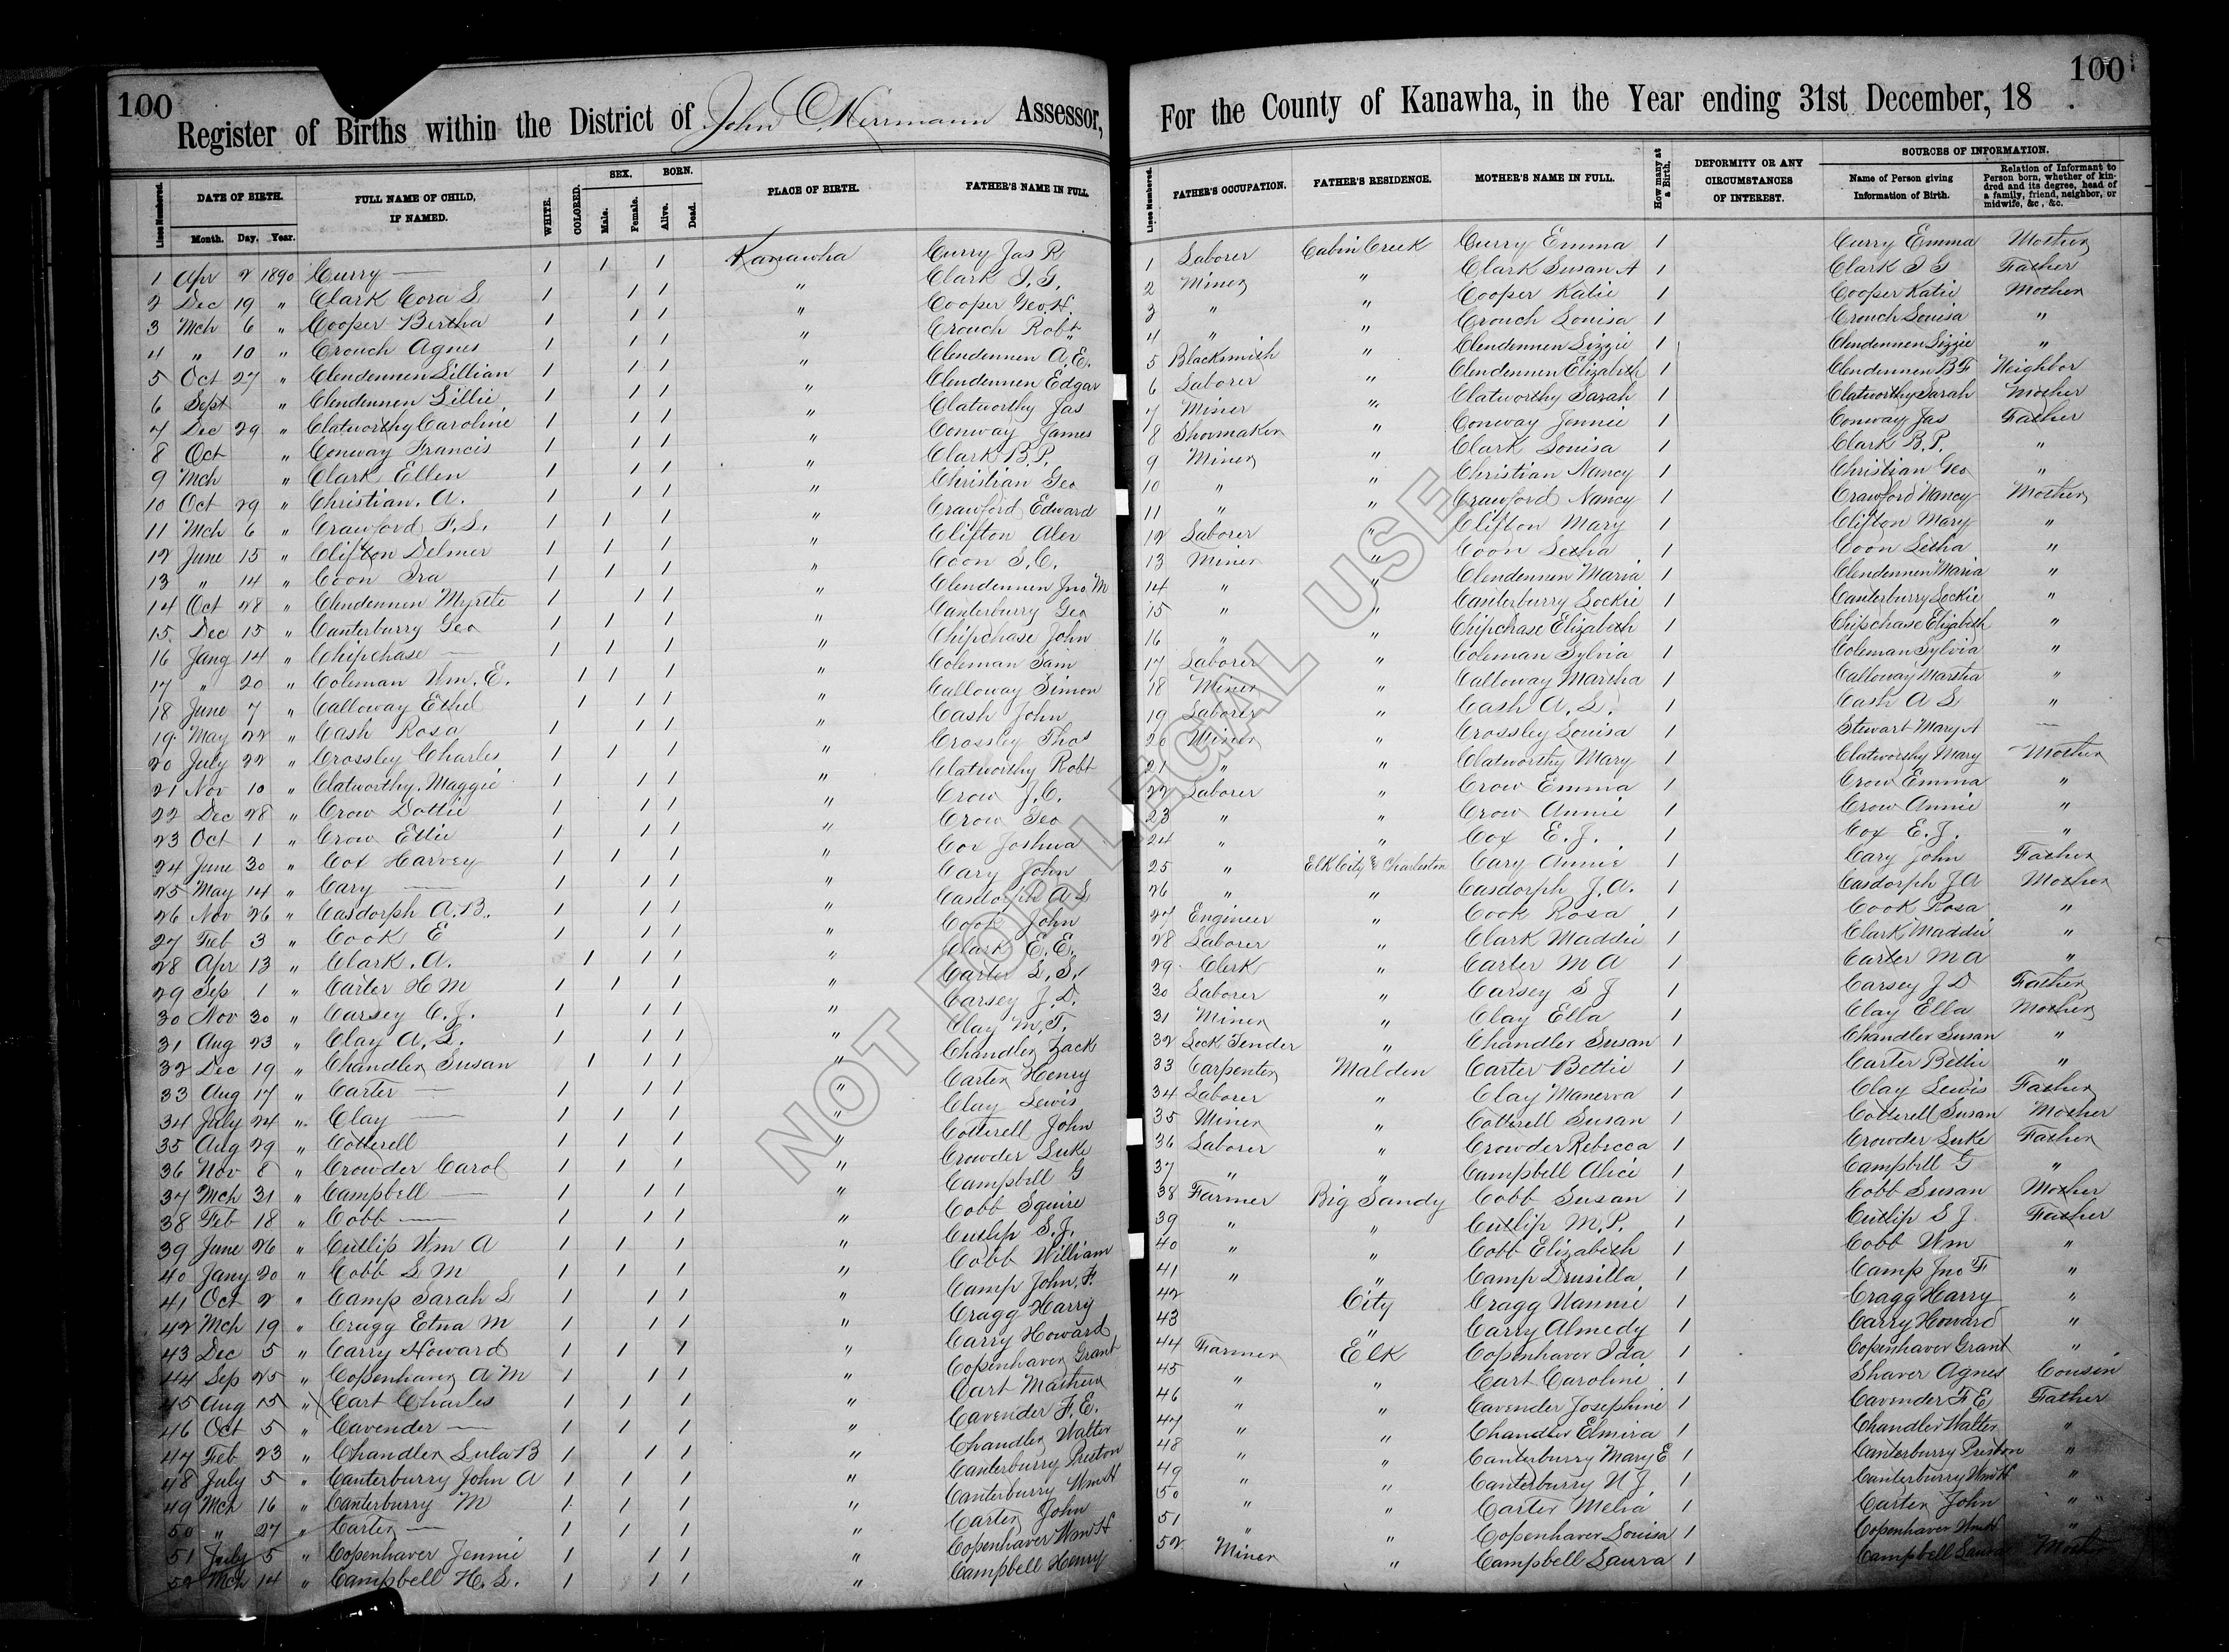 100
Register of Births within the District of John C. Herrmann Assessor,
Lines Numbered.
DATE OF BIRTH.
Month. Day. Year.
FULL NAME OF CHILD, IF NAMED.
WHITE.
COLORED.
SEX.
Male. Female.
BORN.
Alive. Dead.
PLACE OF BIRTH.
FATHER'S NAME IN FULL.
1 Apr 2 1890 Curry — 1 1 1 Kanawha Curry Jas R
2 Dec 19 " Clark Cora S 1 1 1 " Clark I. G.
3 Mch 6 " Cooper Bertha 1 1 1 " Cooper Geo. H.
4 " 10 " Crouch Agnes 1 1 1 " Crouch Robt
5 Oct 27 " Clendennen Lillian 1 1 1 " Clendennen A. E.
6 Sept " Clendennen Lillie 1 1 1 " Clendennen Edgar
7 Dec 29 " Clatworthy Caroline 1 1 1 " Clatworthy Jas
8 Oct " Conway Francis 1 1 1 " Conway James
9 Mch " Clark Ellen 1 1 1 " Clark B. P.
10 Oct 29 " Christian. A. 1 1 1 " Christian Geo
11 Mch 6 " Crawford F. S. 1 1 1 " Crawford Edward
12 June 15 " Clifton Delmer 1 1 1 " Clifton Alex
13 " 14 " Coon Ira 1 1 1 " Coon S. C.
14 Oct 28 " Clendennen Myrtle 1 1 1 " Clendennen Jno. M
15 Dec 15 " Canterburry Geo 1 1 1 " Canterburry Geo
16 Jany 14 " Chipchase — 1 1 1 " Chipchase John
17 " 20 " Coleman Wm. E. 1 1 1 " Coleman Sam
18 June 7 " Calloway Ethel 1 1 1 " Calloway Simon
19 May 22 " Cash Rosa 1 1 1 " Cash John
20 July 22 " Crossley Charles 1 1 1 " Crossley Thos
21 Nov 10 " Clatworthy. Maggie 1 1 1 " Clatworthy Robt
22 Dec 28 " Crow Dottie 1 1 1 " Crow J. C.
23 Oct 1 " Crow Ettie 1 1 1 " Crow Geo
24 June 30 " Cox Harvey 1 1 1 " Cox Joshua
25 May 14 " Cary — 1 1 1 " Cary John
26 Nov 26 " Casdorph A. B. 1 1 1 " Casdorph A S
27 Feb 3 " Cook E 1 1 1 " Cook John
28 Apr 13 " Clark. A. 1 1 1 " Clark E. E.
29 Sep 1 " Carter H M 1 1 1 " Carter L. S.
30 Nov 30 " Carsey C. J. 1 1 1 " Carsey J. D.
31 Aug 23 " Clay A. L. 1 1 1 " Clay M. T.
32 Dec 19 " Chandler Susan 1 1 1 " Chandler Zack
33 Aug 17 " Carter — 1 1 1 " Carter Henry
34 July 24 " Clay — 1 1 1 " Clay Lewis
35 Aug 29 " Cotterell 1 1 1 " Cotterell John
36 Nov 8 " Crowder Carol 1 1 1 " Crowder Luke
37 Mch 31 " Campbell — 1 1 1 " Campbell G
38 Feb 18 " Cobb — 1 1 1 " Cobb Squire
39 June 26 " Cutlip Wm A 1 1 1 " Cutlip S. J.
40 Jany 20 " Cobb S M 1 1 1 " Cobb William
41 Oct 2 " Camp Sarah L 1 1 1 " Camp John. F.
42 Mch 19 " Cragg Etna M 1 1 1 " Cragg Harry
43 Dec 5 " Carry Howard 1 1 1 " Carry Howard
44 Sep 25 " Copenhaver A M 1 1 1 " Copenhaver Grant
45 Aug 15 " Cart Charles 1 1 1 " Cart Mathew
46 Oct 5 " Cavender — 1 1 1 " Cavender F. E.
47 Feb 23 " Chandler Lula B 1 1 1 " Chandler Walter
48 July 5 " Canterburry John A 1 1 1 " Canterburry Preston
49 Mch 16 " Canterburry M 1 1 1 " Canterburry Wm H
50 " 27 " Carter — 1 1 1 " Carter John
51 July 5 " Copenhaver Jennie 1 1 1 " Copenhaver Wm H
52 Mch 14 " Campbell H. L. 1 1 1 " Campbell Henry
100
For the County of Kanawha, in the Year ending 31st December, 18 .
Lines Numbered.
FATHER'S OCCUPATION.
FATHER'S RESIDENCE.
MOTHER'S NAME IN FULL.
How many at a Birth.
DEFORMITY OR ANY CIRCUMSTANCES OF INTEREST.
SOURCES OF INFORMATION.
Name of Person giving Information of Birth.
Relation of Informant to Person born, whether of kindred and its degree, head of a family, friend, neighbor, or midwife, &c, &c.
1 Laborer Cabin Creek Curry Emma 1 Curry Emma Mother
2 Miner " Clark Susan A 1 Clark I G Father
3 " " Cooper Katie 1 Cooper Katie Mother
4 " " Crouch Louisa 1 Crouch Louisa "
5 Blacksmith " Clendennen Lizzie 1 Clendennen Lizzie "
6 Laborer " Clendennen Elizabeth 1 Clendennen B F Neighbor
7 Miner " Clatworthy Sarah 1 Clatworthy Sarah Mother
8 Shoemaker " Conway Jennie 1 Conway Jas Father
9 Miner " Clark Louisa 1 Clark B. P. "
10 " " Christian Nancy 1 Christian Geo "
11 " " Crawford Nancy 1 Crawford Nancy Mother
12 Laborer " Clifton Mary 1 Clifton Mary "
13 Miner " Coon Letha 1 Coon Letha "
14 " " Clendennen Maria 1 Clendennen Maria "
15 " " Canterburry Lockie 1 Canterburry Lockie "
16 " " Chipchase Elizabeth 1 Chipchase Elizabeth "
17 Laborer " Coleman Sylvia 1 Coleman Sylvia "
18 Miner " Calloway Martha 1 Calloway Martha "
19 Laborer " Cash A. S. 1 Cash A S "
20 Miner " Crossley Louisa 1 Stewart Mary A —
21 " " Clatworthy Mary 1 Clatworthy Mary Mother
22 Laborer " Crow Emma 1 Crow Emma "
23 " " Crow Annie 1 Crow Annie "
24 " " Cox E. J. 1 Cox E. J. "
25 " Elk City & Charleston Cary Annie 1 Cary John Father
26 " " Casdorph J. A. 1 Casdorph J A Mother
27 Engineer " Cook Rosa 1 Cook Rosa "
28 Laborer " Clark Maddie 1 Clark Maddie "
29 Clerk " Carter M A 1 Carter M A "
30 Laborer " Carsey S J 1 Carsey J D Father
31 Miner " Clay Ella 1 Clay Ella Mother
32 Lock Tender " Chandler Susan 1 Chandler Susan "
33 Carpenter Malden Carter Bettie 1 Carter Bettie "
34 Laborer " Clay Manerva 1 Clay Lewis Father
35 Miner " Cotterell Susan 1 Cotterell Susan Mother
36 Laborer " Crowder Rebecca 1 Crowder Luke Father
37 " " Campbell Alice 1 Campbell G "
38 Farmer Big Sandy Cobb Susan 1 Cobb Susan Mother
39 " " Cutlip M. P. 1 Cutlip S J. Father
40 " " Cobb Elizabeth 1 Cobb Wm "
41 " " Camp Drusilla 1 Camp Jno F "
42 City Cragg Nannie 1 Cragg Harry "
43 " Carry Almedy 1 Carry Howard "
44 Farmer Elk Copenhaver Ida 1 Copenhaver Grant "
45 " " Cart Caroline 1 Shaver Agnes Cousin
46 " " Cavender Josephine 1 Cavender F E Father
47 " " Chandler Elmira 1 Chandler Walter "
48 " " Canterburry Mary E 1 Canterburry Preston "
49 " " Canterburry N J. 1 Canterburry Wm H "
50 " " Carter Melia 1 Carter John "
51 " " Copenhaver Louisa 1 Copenhaver Wm H "
52 Miner " Campbell Laura 1 Campbell Laura Mother
NOT FOR LEGAL USE